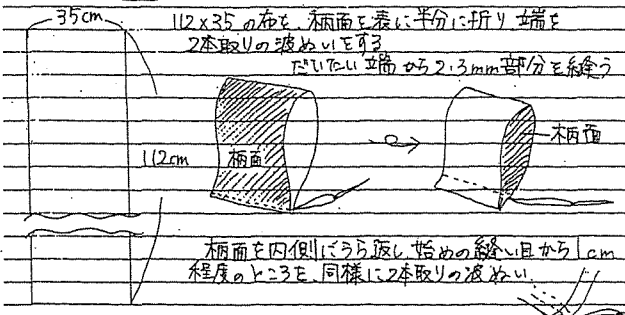 35cm
112×35の布を、柄面を表に半分に折り端を
2本取りの波ぬいをする
だいたい端から2.3mm部分を縫う
柄面
柄面
112cm
柄面を内側にうら返し、始めの縫い目から1cm
程度のところを、同様に2本取りの波ぬい